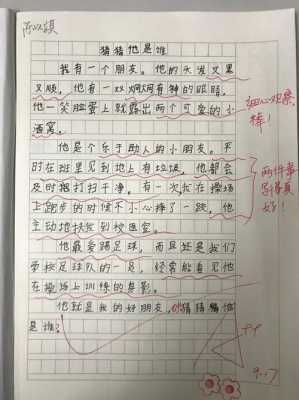 猜猜他是谁
我有一个朋友。他的头发又黑
又顺,他有一双炯炯有神的眼睛。
他一笑脸蛋上就露出两个可爱的小
酒窝。
细心观察,
棒!
他是个乐于助人的小朋友。平
时在班里见到地上有垃圾,他都会
及时把打扫干净。有一次我在操场
上跑步的时候不小心摔了一跤,他
主动地扶我到校医室。
两件事
写得真
好!
他最爱踢足球,而且还是我们
学校足球队的一员,经常能看见他
在操场上训练的身影。
他就是我的好朋友,你猜猜他
是谁?
9.17